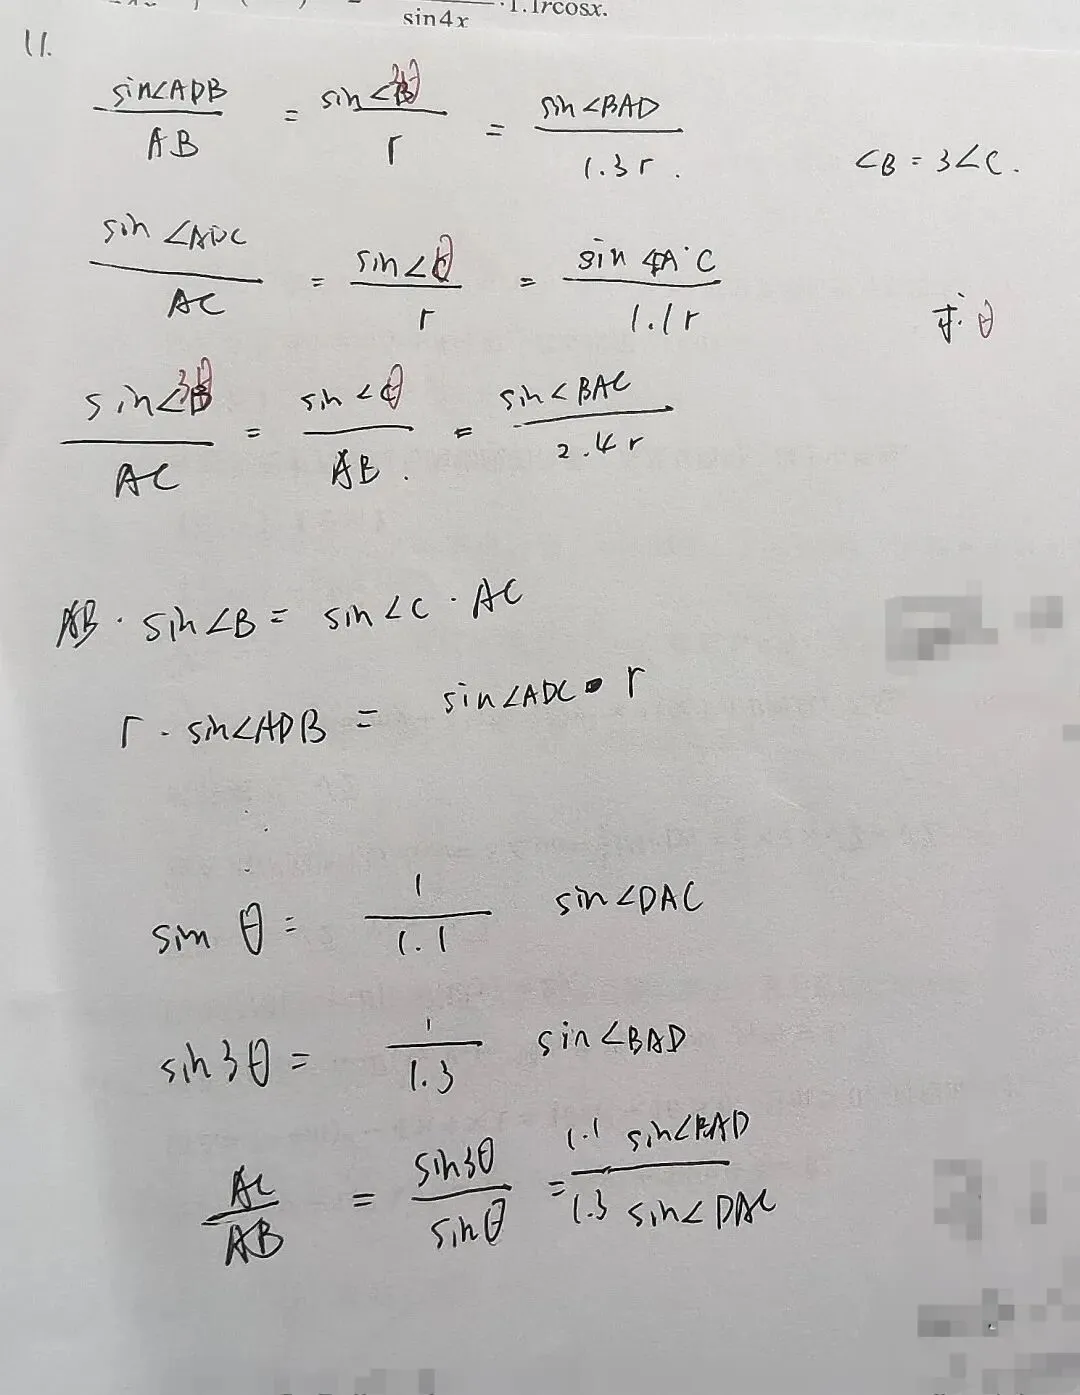 sin4x ·1.1rcosx.
11.
sin∠ADB / AB = sin∠3θ / r = sin∠BAD / 1.3r.
∠B = 3∠C.
sin∠ADC / AC = sin∠θ / r = sin∠DAC / 1.1r
求: θ
sin∠3θ / AC = sin∠θ / AB. = sin∠BAC / 2.4r
AB · sin∠B = sin∠C · AC
r · sin∠ADB = sin∠ADC · r
sin θ = 1/1.1 sin∠DAC
sin3θ = 1/1.3 sin∠BAD
AC/AB = sin3θ/sinθ = 1.1 sin∠BAD / 1.3 sin∠DAC